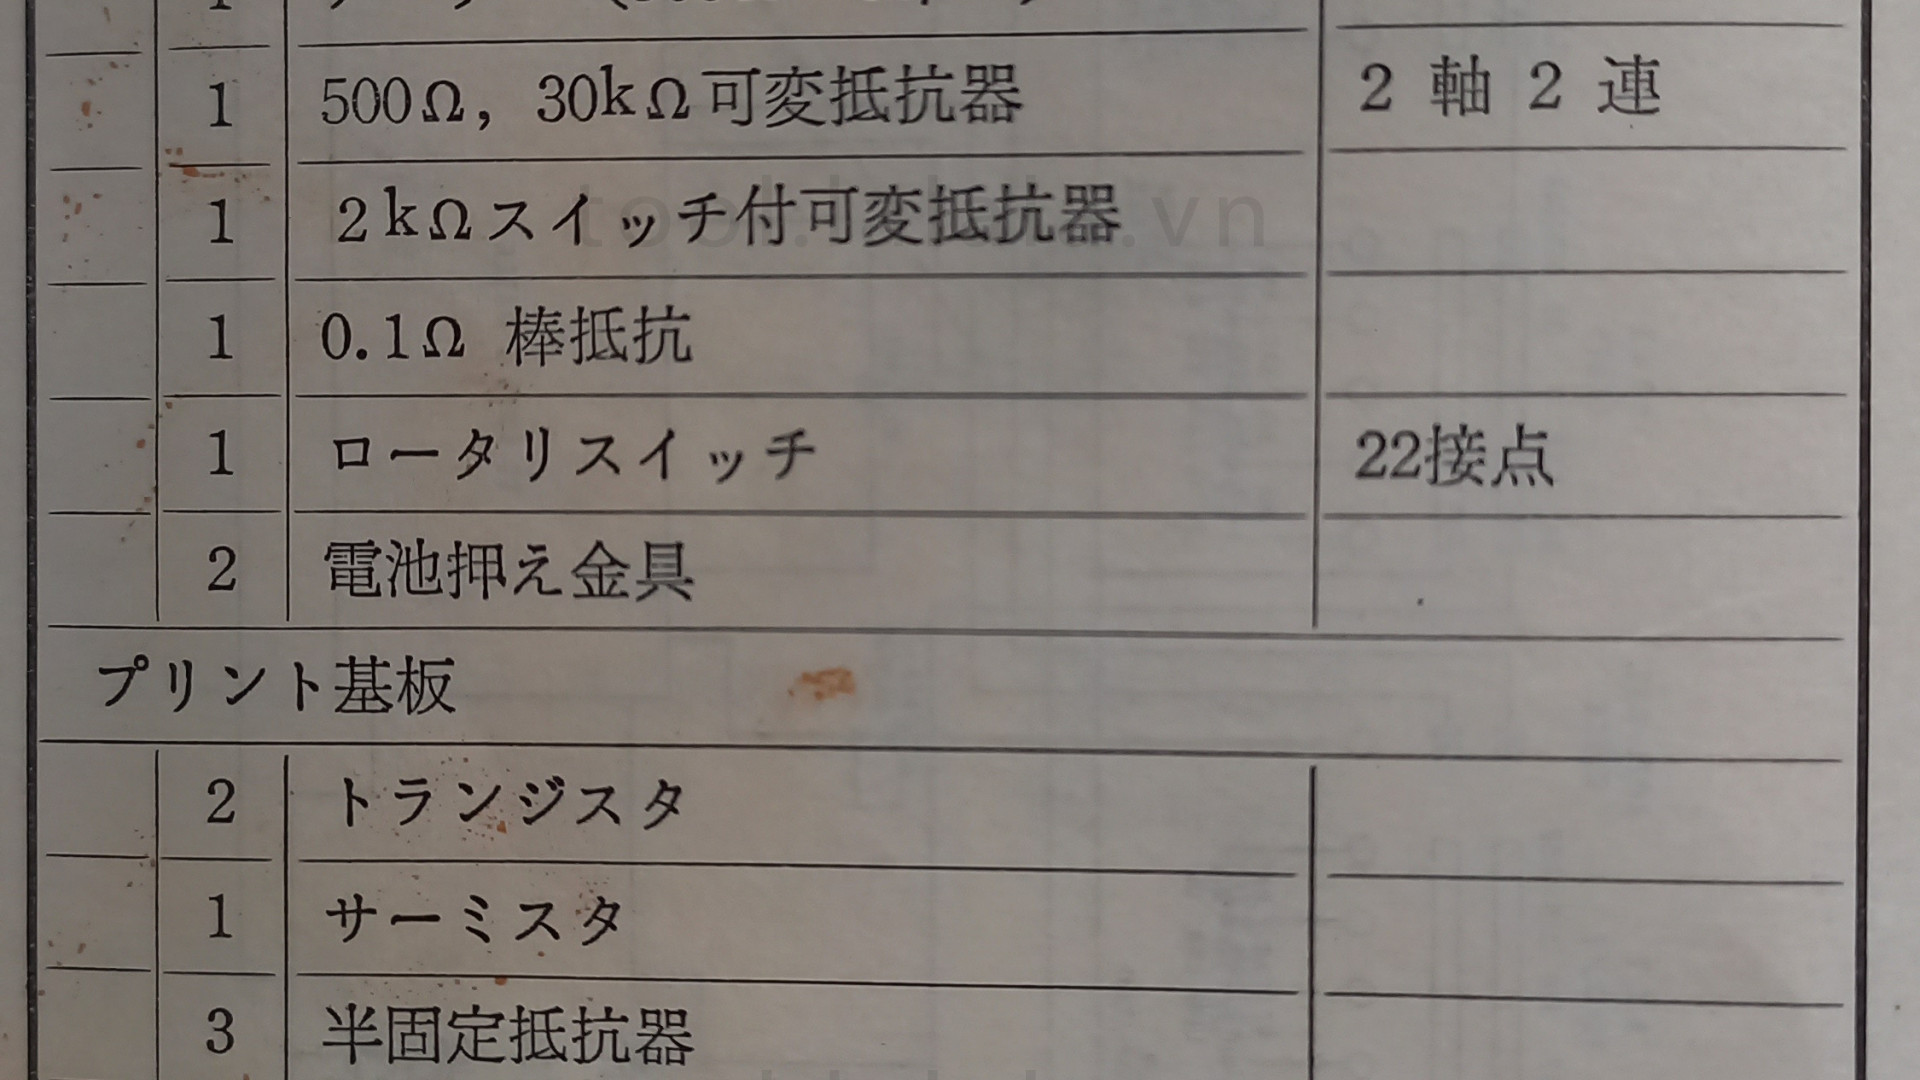 1 500Ω, 30kΩ可変抵抗器 2 軸 2 連
1 2kΩスイッチ付可変抵抗器
1 0.1Ω 棒抵抗
1 ロータリスイッチ 22接点
2 電池押え金具
プリント基板
2 トランジスタ
1 サーミスタ
3 半固定抵抗器